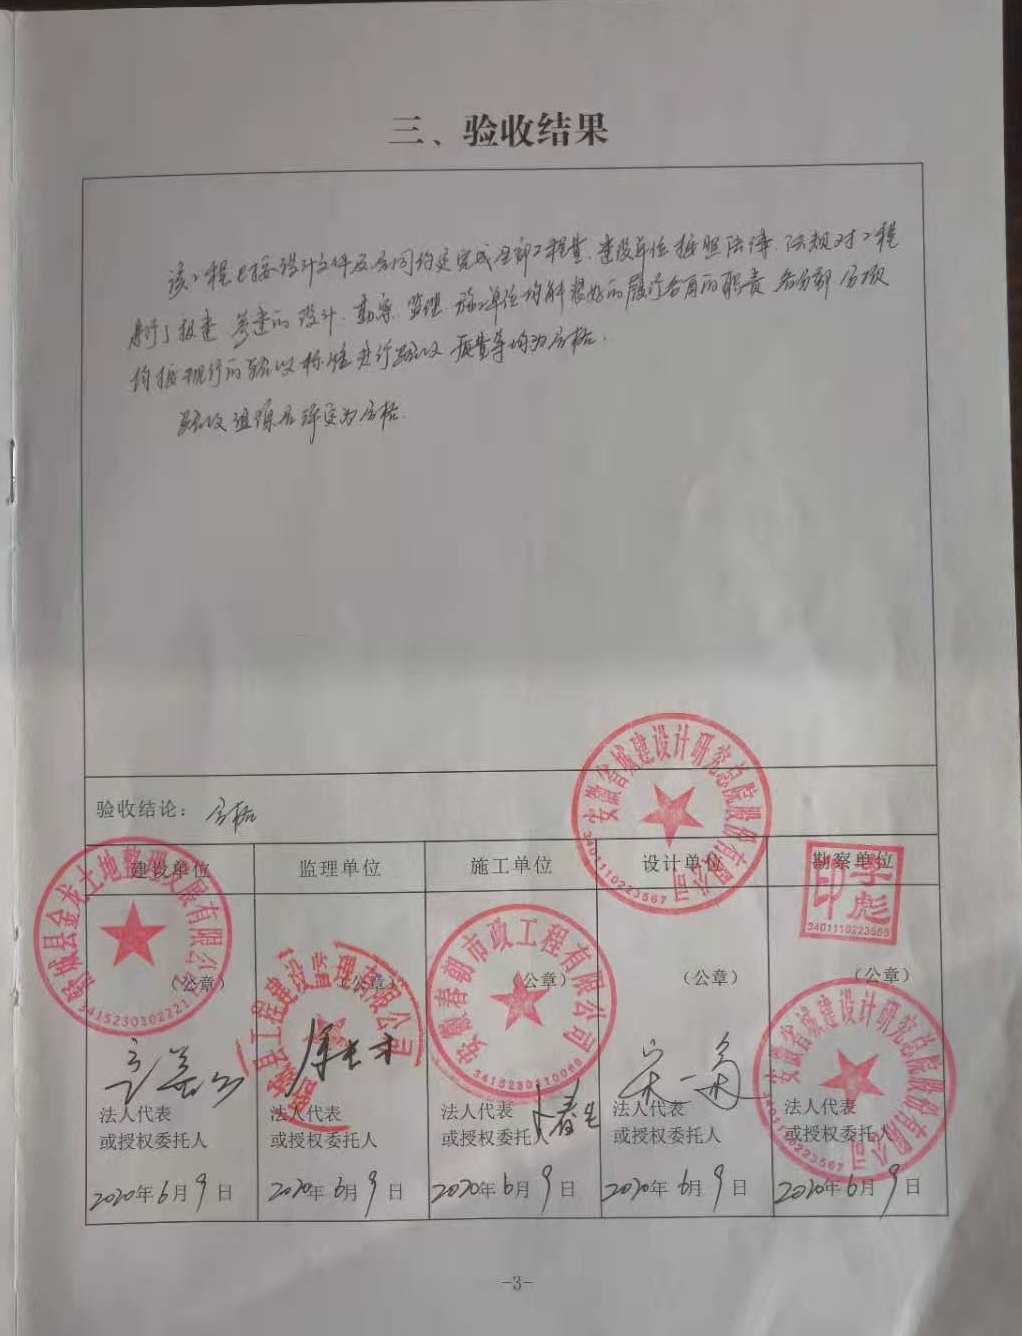 三、验收结果
该工程已按设计文件及合同约定完成全部工程量、建设单位按照法律、法规对工程
履行了报建、参建的设计、勘察、监理、施工单位均能很好的履行各自的职责、各分部、分项
均按现行的验收标准进行验收、质量等均为合格.
验收选项总评定为合格.
验收结论：合格
建设单位 监理单位 施工单位 设计单位 勘察单位
（公章） （公章） （公章） （公章） （公章）
舒城县金龙土地整理有限公司
舒城县工程建设监理有限公司
安徽春朝市政工程有限公司
3415230310069
安徽省城建设计研究总院股份有限公司
3401110223567
印 李彪
3401110223565
安徽省城建设计研究总院股份有限公司
3401110223567
法人代表 法人代表 法人代表 法人代表 法人代表
或授权委托人 或授权委托人 或授权委托人 或授权委托人 或授权委托人
2020年6月9日 2020年6月9日 2020年6月9日 2020年6月9日 2020年6月9日
-3-